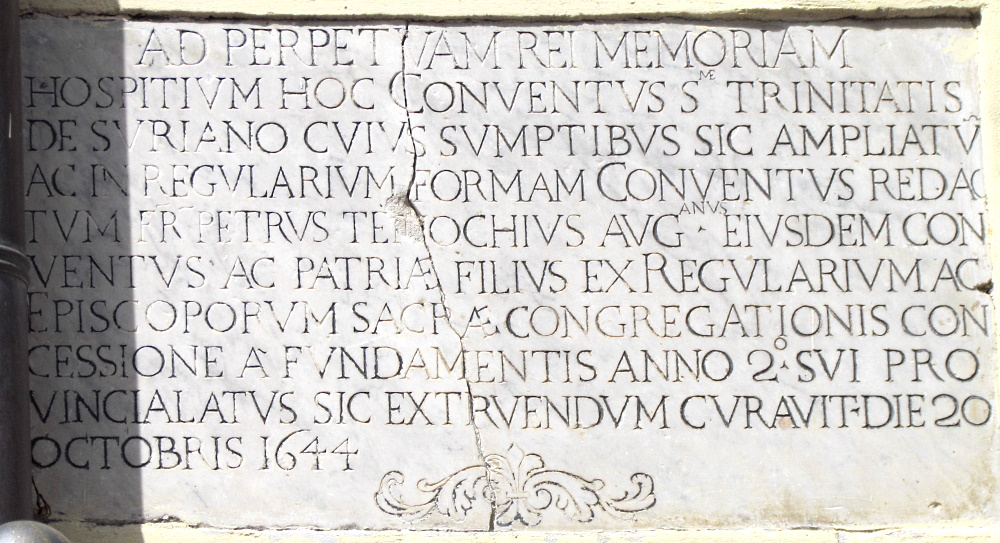 AD PERPETVAM REI MEMORIAM
HOSPITIVM HOC CONVENTVS Sᴹᴱ TRINITATIS
DE SVRIANO CVIVS SVMPTIBVS SIC AMPLIATṼ
AC IN REGVLARIVM FORMAM CONVENTVS REDAC
TVM FR PETRVS OCHIVS AVGᴬᴺⱽˢ EIVSDEM CON
VENTVS AC PATRIÆ FILIVS EX REGVLARIVM AC
EPISCOPORVM SACRÆ CONGREGATIONIS CON
CESSIONE A FVNDAMENTIS ANNO 2º SVI PRO
VINCIALATVS SIC EXTRVENDVM CVRAVIT·DIE 20
OCTOBRIS 1644